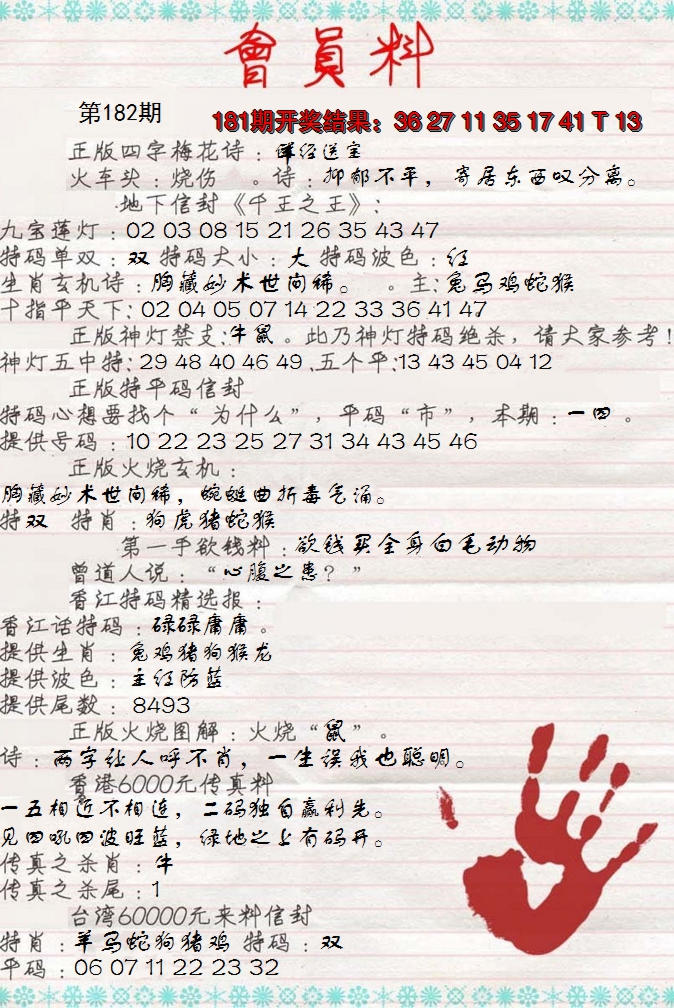 會員料
第182期
181期开奖结果：36 27 11 35 17 41 T 13
正版四字梅花诗：择径送宝
火车头：烧伤　。诗：抑郁不平，寄居东西叹分离。
地下信封《千王之王》：
九宝莲灯：02 03 08 15 21 26 35 43 47
特码单双：双 特码大小：大 特码波色：红
生肖玄机诗：胸藏妙术世间稀。　。主：兔马鸡蛇猴
十指平天下：02 04 05 07 14 22 33 36 41 47
正版神灯禁支：牛鼠。此乃神灯特码绝杀，请大家参考！
神灯五中特：29 48 40 46 49 .五个平：13 43 45 04 12
正版特平码信封
特码心想要找个“为什么”，平码“市”，本期：一四。
提供号码：10 22 23 25 27 31 34 43 45 46
正版火烧玄机：
胸藏妙术世间稀，蜿蜒曲折毒气涌。
特双　特肖：狗虎猪蛇猴
第一手欲钱料：欲钱买全身白毛动物
曾道人说：“心腹之患？”
香江特码精选报：
香江话特码：碌碌庸庸。
提供生肖：兔鸡猪狗猴龙
提供波色：主红防蓝
提供尾数：8493
正版火烧图解：火烧“鼠”。
诗：两字让人呼不肖，一生误我也聪明。
香港6000元传真料
一五相近不相连，二码独自赢利先。
见四吼四波旺蓝，绿地之上有码开。
传真之杀肖：牛
传真之杀尾：1
台湾60000元来料信封
特肖：羊马蛇狗猪鸡 特码：双
平码：06 07 11 22 23 32